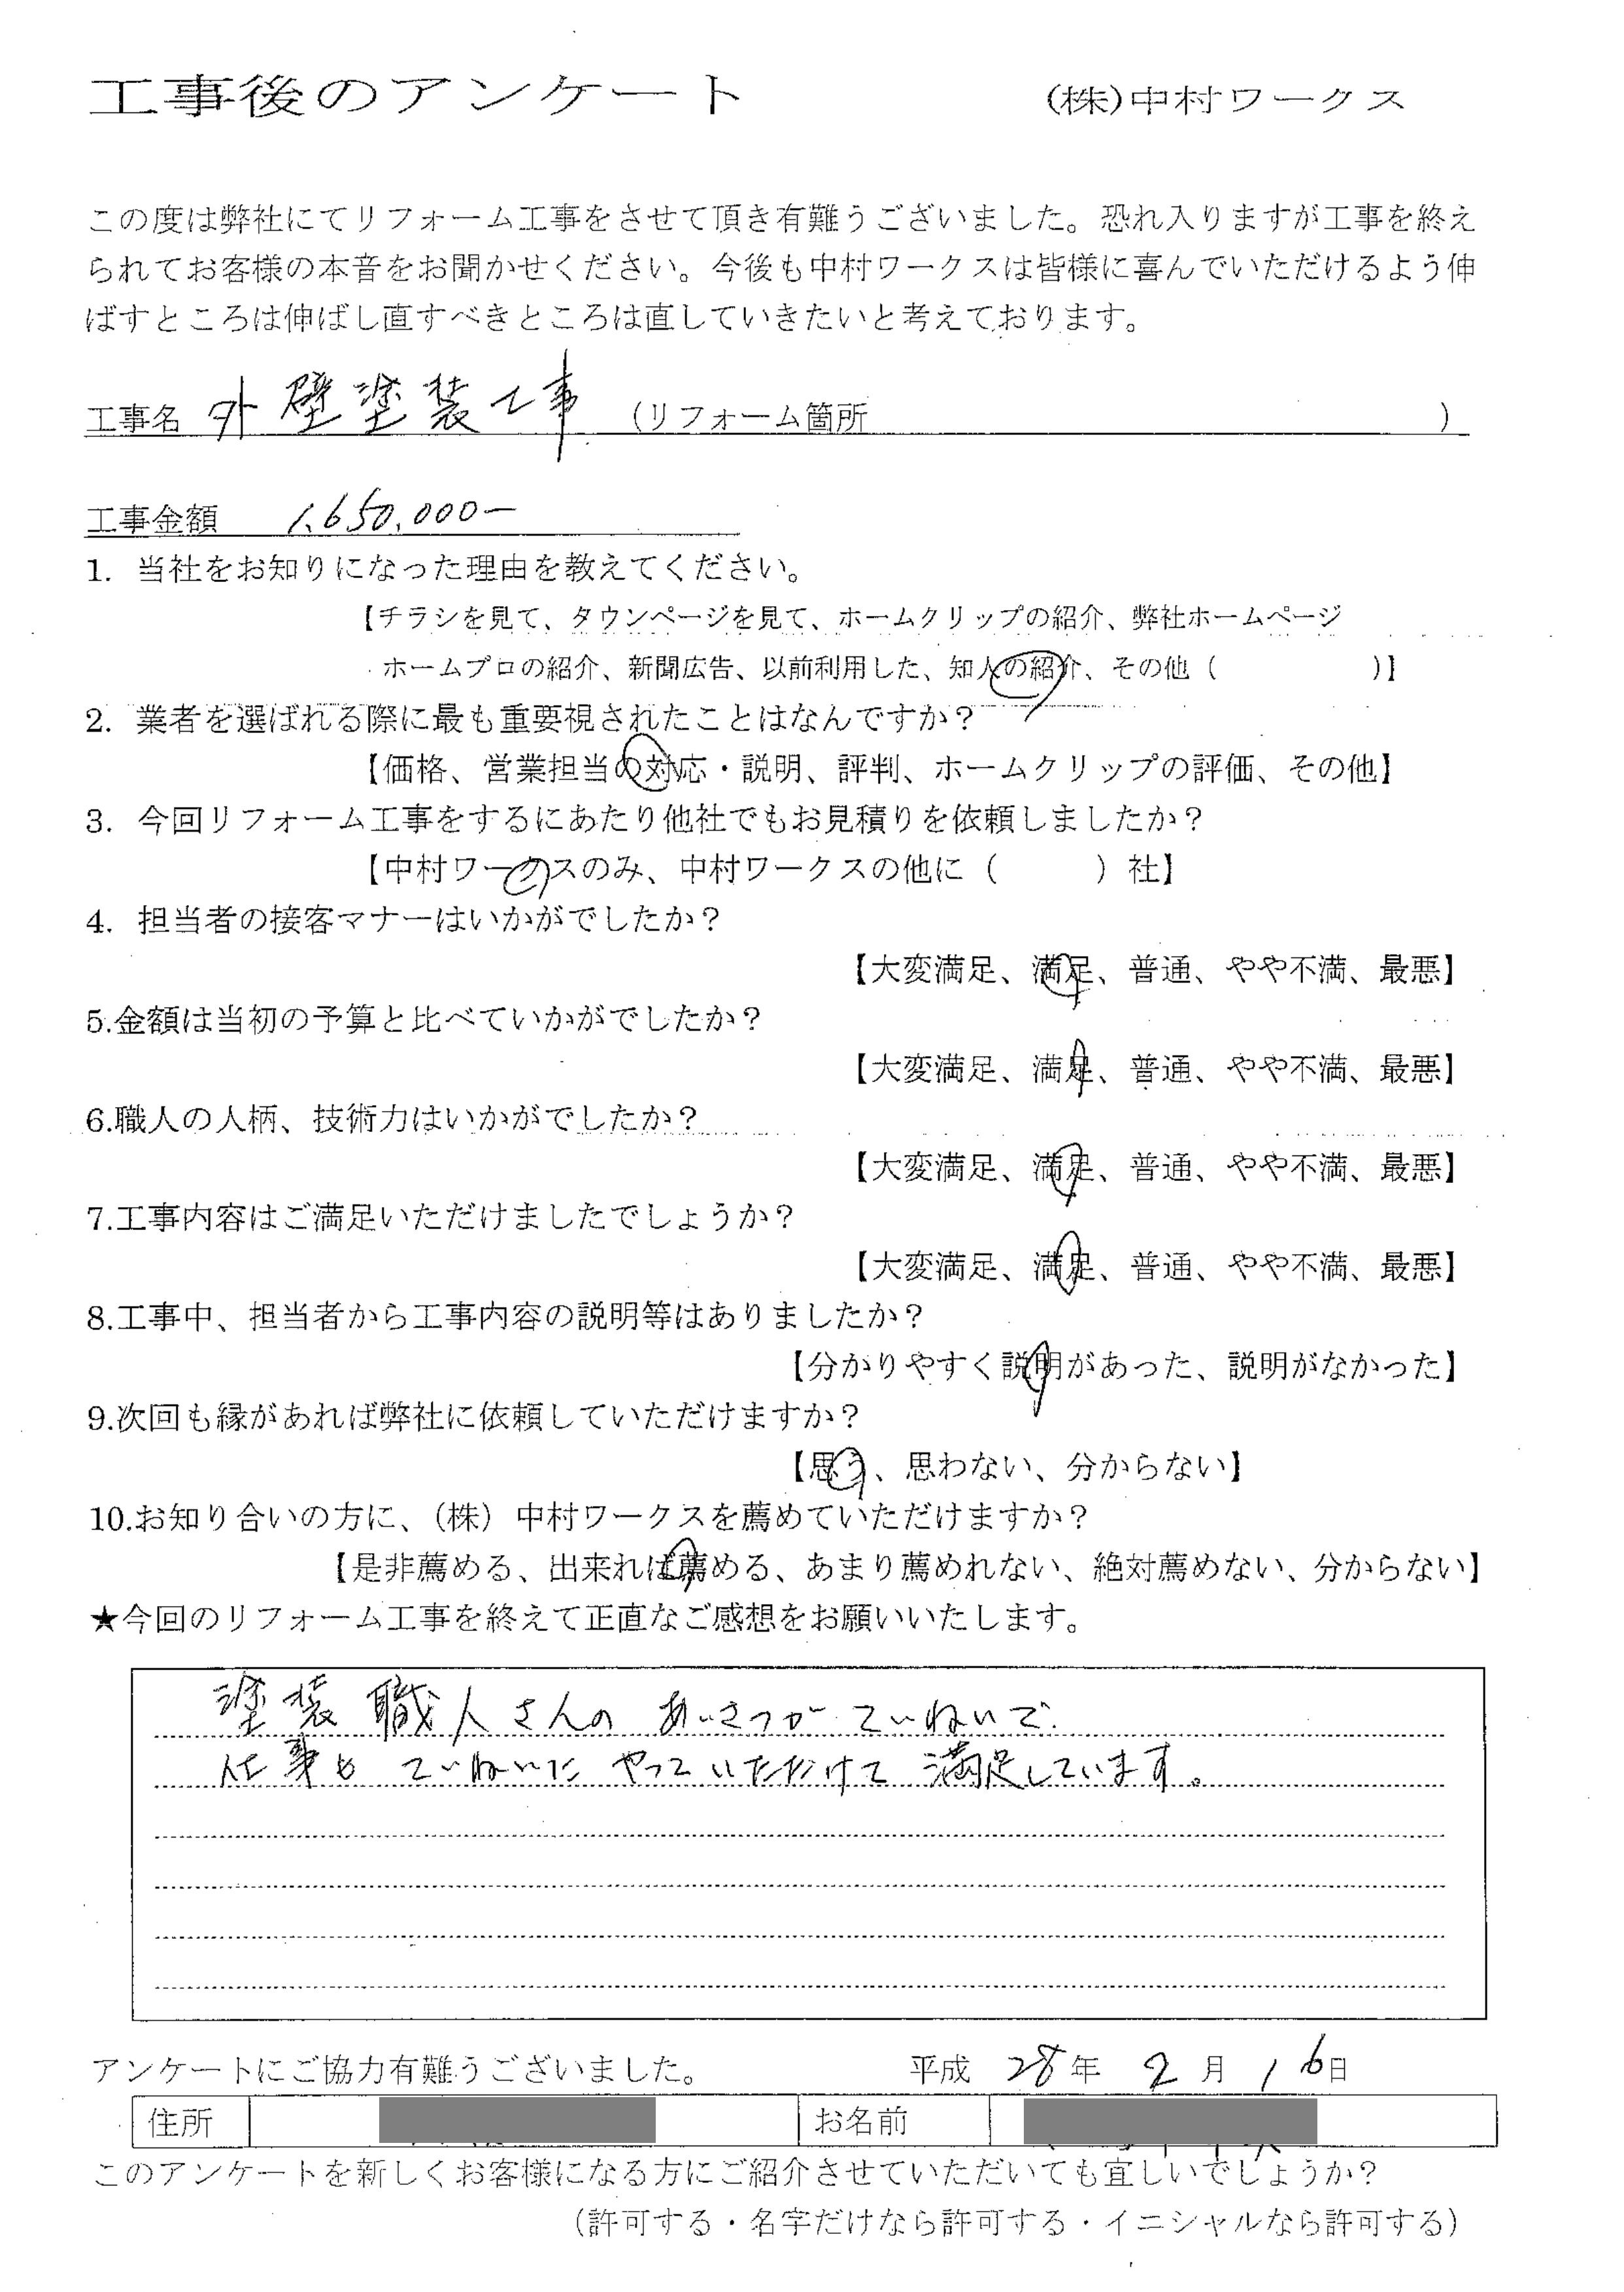 工事後のアンケート　(株)中村ワークス
この度は弊社にてリフォーム工事をさせて頂き有難うございました。恐れ入りますが工事を終え
られてお客様の本音をお聞かせください。今後も中村ワークスは皆様に喜んでいただけるよう伸
ばすところは伸ばし直すべきところは直していきたいと考えております。
工事名 外壁塗装工事 （リフォーム箇所　）
工事金額 1,650,000-
1. 当社をお知りになった理由を教えてください。
【チラシを見て、タウンページを見て、ホームクリップの紹介、弊社ホームページ
ホームプロの紹介、新聞広告、以前利用した、知人の紹介、その他（　）】
2. 業者を選ばれる際に最も重要視されたことはなんですか？
【価格、営業担当の対応・説明、評判、ホームクリップの評価、その他】
3. 今回リフォーム工事をするにあたり他社でもお見積りを依頼しましたか？
【中村ワークスのみ、中村ワークスの他に（　）社】
4. 担当者の接客マナーはいかがでしたか？
【大変満足、満足、普通、やや不満、最悪】
5.金額は当初の予算と比べていかがでしたか？
【大変満足、満足、普通、やや不満、最悪】
6.職人の人柄、技術力はいかがでしたか？
【大変満足、満足、普通、やや不満、最悪】
7.工事内容はご満足いただけましたでしょうか？
【大変満足、満足、普通、やや不満、最悪】
8.工事中、担当者から工事内容の説明等はありましたか？
【分かりやすく説明があった、説明がなかった】
9.次回も縁があれば弊社に依頼していただけますか？
【思う、思わない、分からない】
10.お知り合いの方に、（株）中村ワークスを薦めていただけますか？
【是非薦める、出来れば薦める、あまり薦めれない、絶対薦めない、分からない】
★今回のリフォーム工事を終えて正直なご感想をお願いいたします。
塗装職人さんの あいさつが ていねいで
仕事も ていねいに やっていただけて 満足しています。
アンケートにご協力有難うございました。 平成 28年 2月 16日
住所　お名前
このアンケートを新しくお客様になる方にご紹介させていただいても宜しいでしょうか？
（許可する・名字だけなら許可する・イニシャルなら許可する）